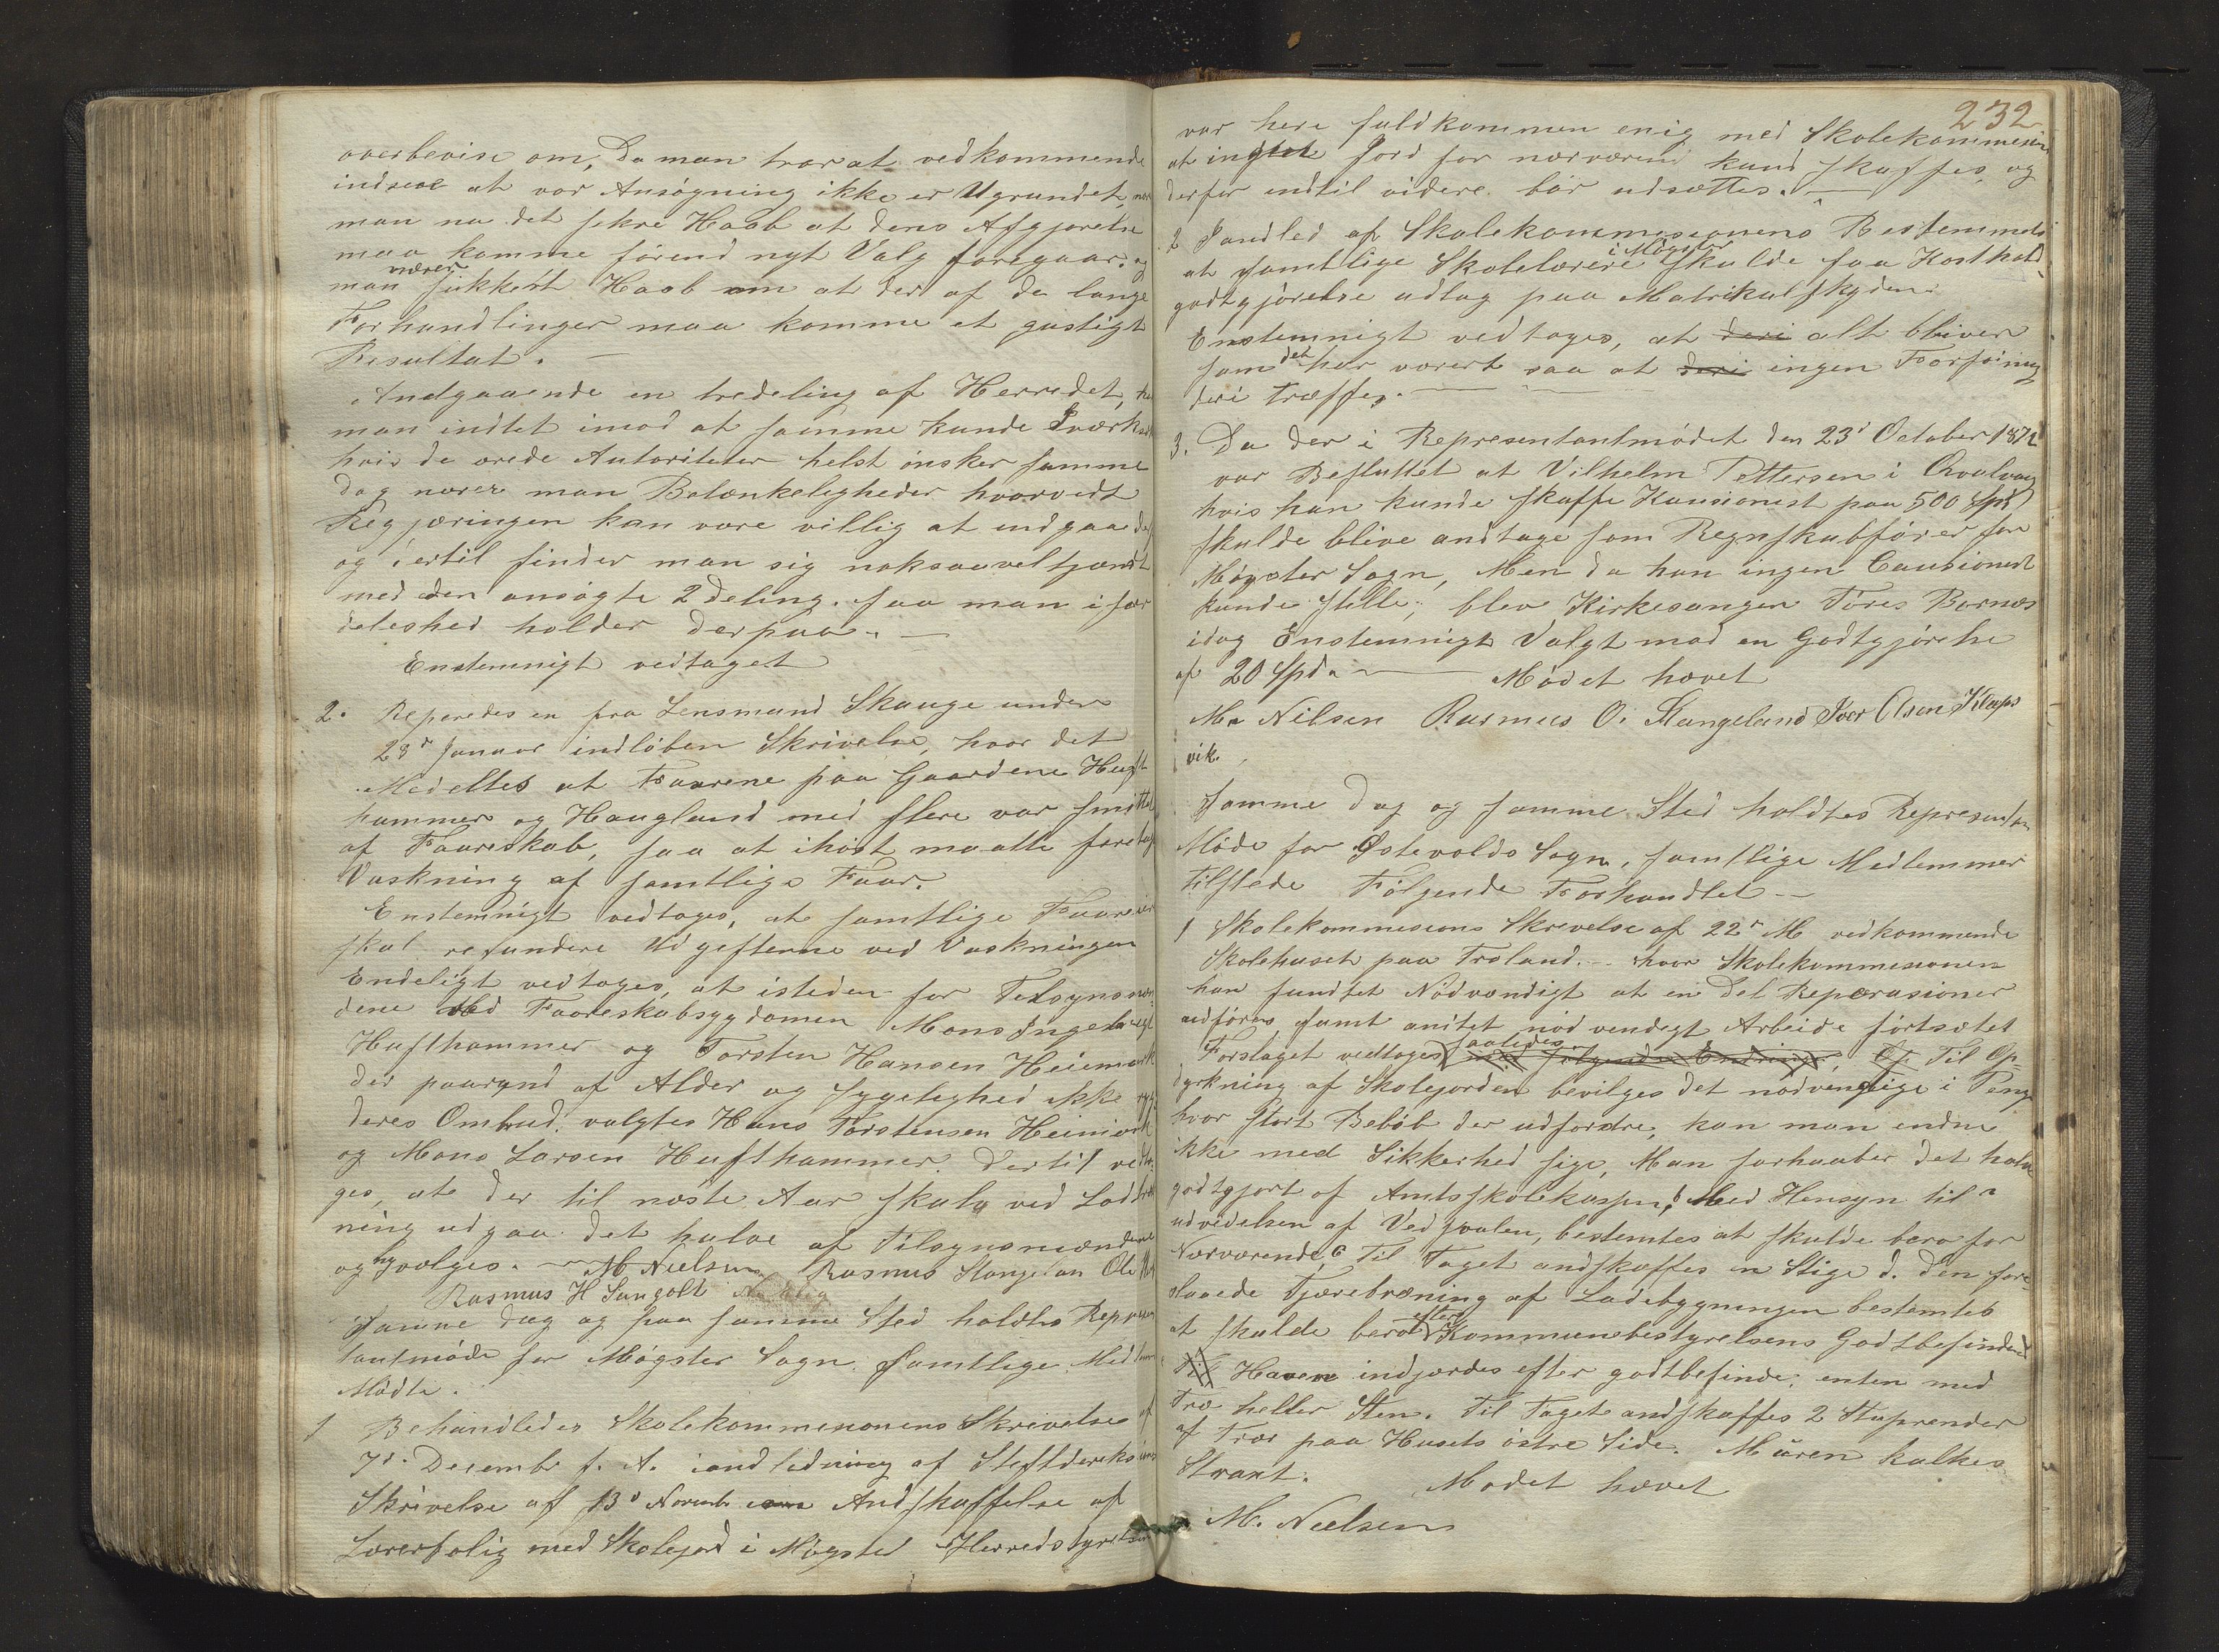 overbevise om, da man tror at vedkommende
indseer at vor Ansøgning ikke er Ugrundet,
man nu det sikre Haab at dens Afgjørelse
maa komme førend nyt Valg foregaar. og
man nærer sikkert Haab om at der af de lange
Forhandlinger maa komme et gustigt
Resultat. —
Andgaaende en tredeling af Herredet,
man indtet imod at samme kunde Iværks
hvis de ærede Autoriteter helst ønsker samme
dog nærer man Betænkeligheder hvorvidt
Regjæringen kan være villig at indgaa
og dertil finder man sig noksaavel tjændt
med den ansøgte 2 deling. saa man i sær
deleshed holder derpaa. —
Enstemmigt vedtaget
2. Refferedes en fra Lensmand Skauge under
28de Januar indløben Skrivelse, hvor det
Medeltes at Faarene paa Gaardene Huft
hammer og Haugland med flere var smittet
af Faareskab, saa at ihøst maatte foretag
Vaskning af samtlige Faar.
Enstemmigt vedtoges, at samtlige Faareier
skal refundere Udgifterne ved Vaskningen
Endeligt vedtoges, at isteden for Tilsynsmæn
dene ved Faareskabsygdomen Mons Ingebrigt
Hufthammer og Torsten Hansen Heimark
der paagrund af Alder og Sygelighed ikke
deres Ombud, valgtes Hans Torstensen Heimark
og Mons Larsen Hufthammer. Dertil vedto
ges, at der til næste Aar skulde ved Lodtræk
ning udgaa det halve af Tilsynsmændene
og ny vælges. — M Nielsen Rasmus Stangelan Ole
Rasmus H Sangolt
Samme dag og paa samme Sted holdtes Represen
tantmøde for Møgster Sogn. Samtlige Medlem
Mødte.
1 Behandledes Skolekommesionens Skrivelse af
7de Decembr f. A. iandledning af Steftdireksions
Skrivelse af 13de Novemb Andskaffelse af
Lærerbolig med Skolejord i Møgster Herredstyrelsen
232
var heri fuldkommen enig med Skolekommesion
at ingen Jord for nærværend kund skaffes, og
derfor indtil videre bør udsættes. —
2 Iandled af Skolekommesionens Bestemmels
at samtlige Skolelærere i Møgster skulde faa Kosthold
godtgjørelse udlag paa Matrikulskylden
Enstemmigt vedtoges, at deri alt bliver
som det har været saa at deri ingen Forføining
deri træffes. —
3. Da der i Representantmødet den 23de October 1872
var Besluttet at Vilhelm Pettersen i Qvalvaag
hvis han kunde skaffe Kausionist paa 500 Spd
skulde blive andtage som Regnskabfører for
Møgster Sogn, Men da han ingen Causionist
kunde stille, blev Kirkesanger Tøres Bornæs
idag Enstemmigt Valgt mod en Godtgjørelse
af 20 Spd. — Mødet hævet
M. Nilsen Rasmus O. Stangeland Iver Olsen Kleps
vik.
Samme dag og samme Sted holdtes Represendtan
Møde for Østevolds Sogn, samtlige Medlemmer
tilstede Følgende Forhandlet —
1 Skolekommesions Skrevelse af 22de M. vedkommende
Skolehuset paa Troland. — hvor Skolekommesionen
han fundtet Nødvendigt at en Del Reparasioner
udføres, samt andtet nødvendigt Arbeide førtsetet
Forslaget vedtoges saaledes med følgende Endringer, Til Op
dyrkning af Skolejorden bevilges det nødvendige i Penge
hvor stort Beløb der udfordre, kan man endnu
ikke med Sikkerhed sige, Man forhaaber det halve
godtgjort af Amtsskolekassen, b Med Hensyn til
udvidelsen af Vedskulen, bestemtes at skulde bero for
Nærværende, c Til Taget andskaffes en Stige d. den fore
slaaede Tjærebræning af Ladebygningen bestemtes
at skulde bero efter Kommunebestyrelsens Godtbefindend
Til Haven indjærdes efter godtbefinde, enten med
Træ heller Sten. Til Taget andskaffes 2 Stuprender
af Træ paa Husets østre Side. Muren kalkes
Straxt. Mødet hævet
M. Nielsen